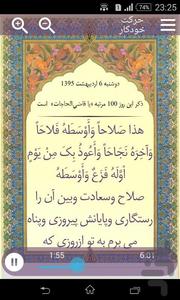 23:25
حرکت
خودکار
دوشنبه 6 اردیبهشت 1395
ذکر این روز 100 مرتبه «یا قاضی‌الحاجات» است
هذا صَلاحاً وَأَوْسَطَهُ فَلاحَاً
وَآخِرَهُ نَجَاحَاً وَأَعُوذُ بِكَ مِنْ يَوْمٍ
أَوَّلُهُ فَزَعٌ وَأَوْسَطُهُ
صلاح وسعادت وبین آن را
رستگاری وپایانش پیروزی وپناه
می برم به تو ازروزی که
1:55
6:01